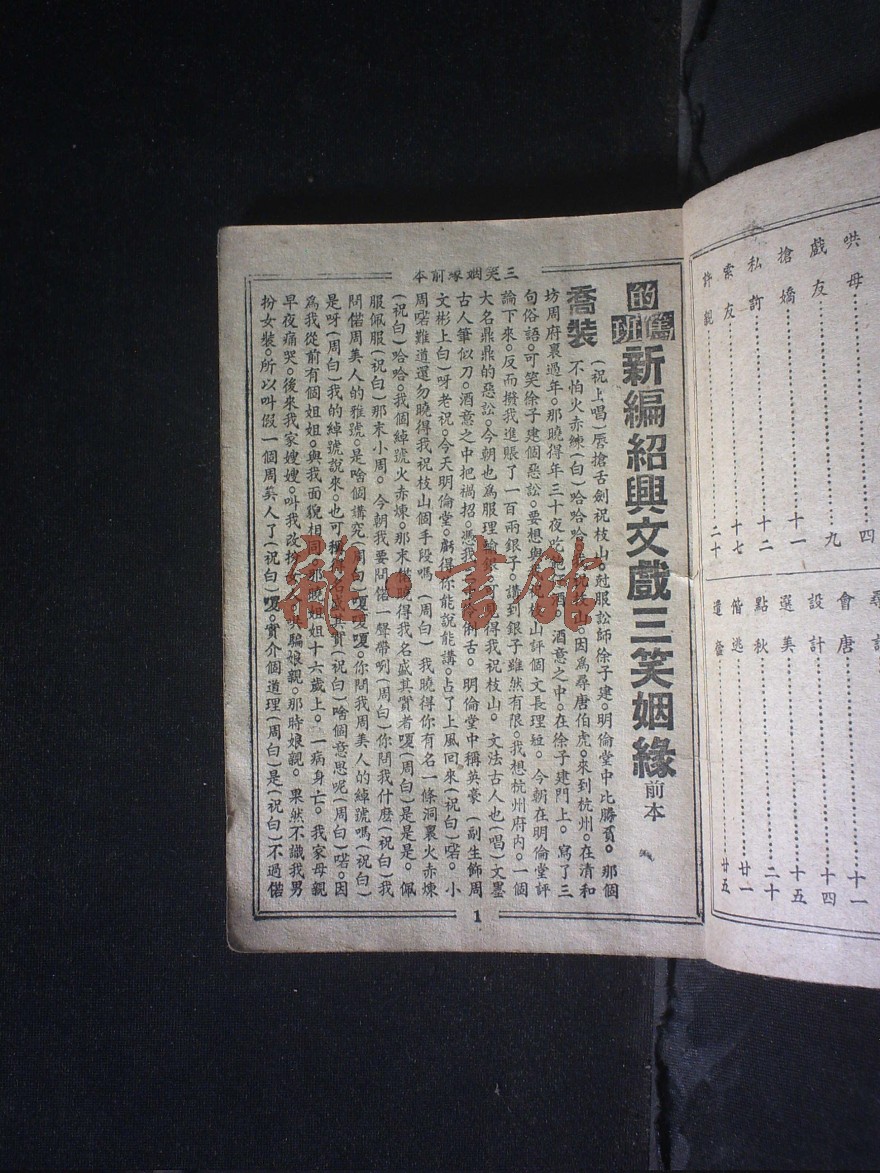 三笑姻緣前本
的篤班
新編紹興文戲三笑姻緣 前本
喬裝
(祝上唱)唇搶舌劍祝枝山。尅服訟師徐子建。明倫堂中比勝負。那個
不怕火赤練(白)哈哈哈。祝枝山。因爲尋唐伯虎。來到杭州。在清和
坊周府裏過年。那曉得年三十夜吃 酒。酒意之中。在徐子建門上。寫了三
句俗語。可笑徐子建個惡訟。要想與 祝枝山評個文長理短。今朝在明倫堂評
論下來。反而撥我進賬了一百兩銀子。講到銀子雖然有限。我想杭州府內。一個
大名鼎鼎的惡訟。今朝也爲服理輸 得我祝枝山。文法古人也(唱)文墨
古人筆似刀。酒意之中把禍招。憑我 俐舌。明倫堂中稱英豪(副生飾周
文彬上白)呀老祝。今天明倫堂。虧得你能說能講。占了上風回來(祝白)喏。小
周喏難道還勿曉得我祝枝山個手段嗎(周白)我曉得你有名一條洞裏火赤煉
(祝白)哈哈。我個綽號火赤煉。那末偕 曉得我名盛其實者嗄(周白)是是是。佩
服佩服(祝白)那末小周。今朝我要問偕一聲帶咧(周白)你問我什麼(祝白)我
問偕周美人的雅號。是啥個講究(周白)嗄嗄嗄。你問我周美人的綽號嗎(祝白)
是呀(周白)我的綽號說來。也可稱得名盛其實(祝白)啥個意思呢(周白)喏。因
爲我從前有個姐姐。與我面貌相同。那曉姐姐十六歲上。一病身亡。我家母親
早夜痛哭。後來我家嫂嫂。叫我改扮 哄騙娘親。那時娘親。果然不識我男
扮女裝。所以叫假一個周美人了(祝白)嗄。實介個道理(周白)是(祝白)不過偕
1
哄母 四
戲友 九
搶嬌 十一
私訂 十二
索友 十七
許親 二十
會唐 十一
設計 十四
選美 十五
點秋 二十
偕逃 廿一
廿五
雜·書館